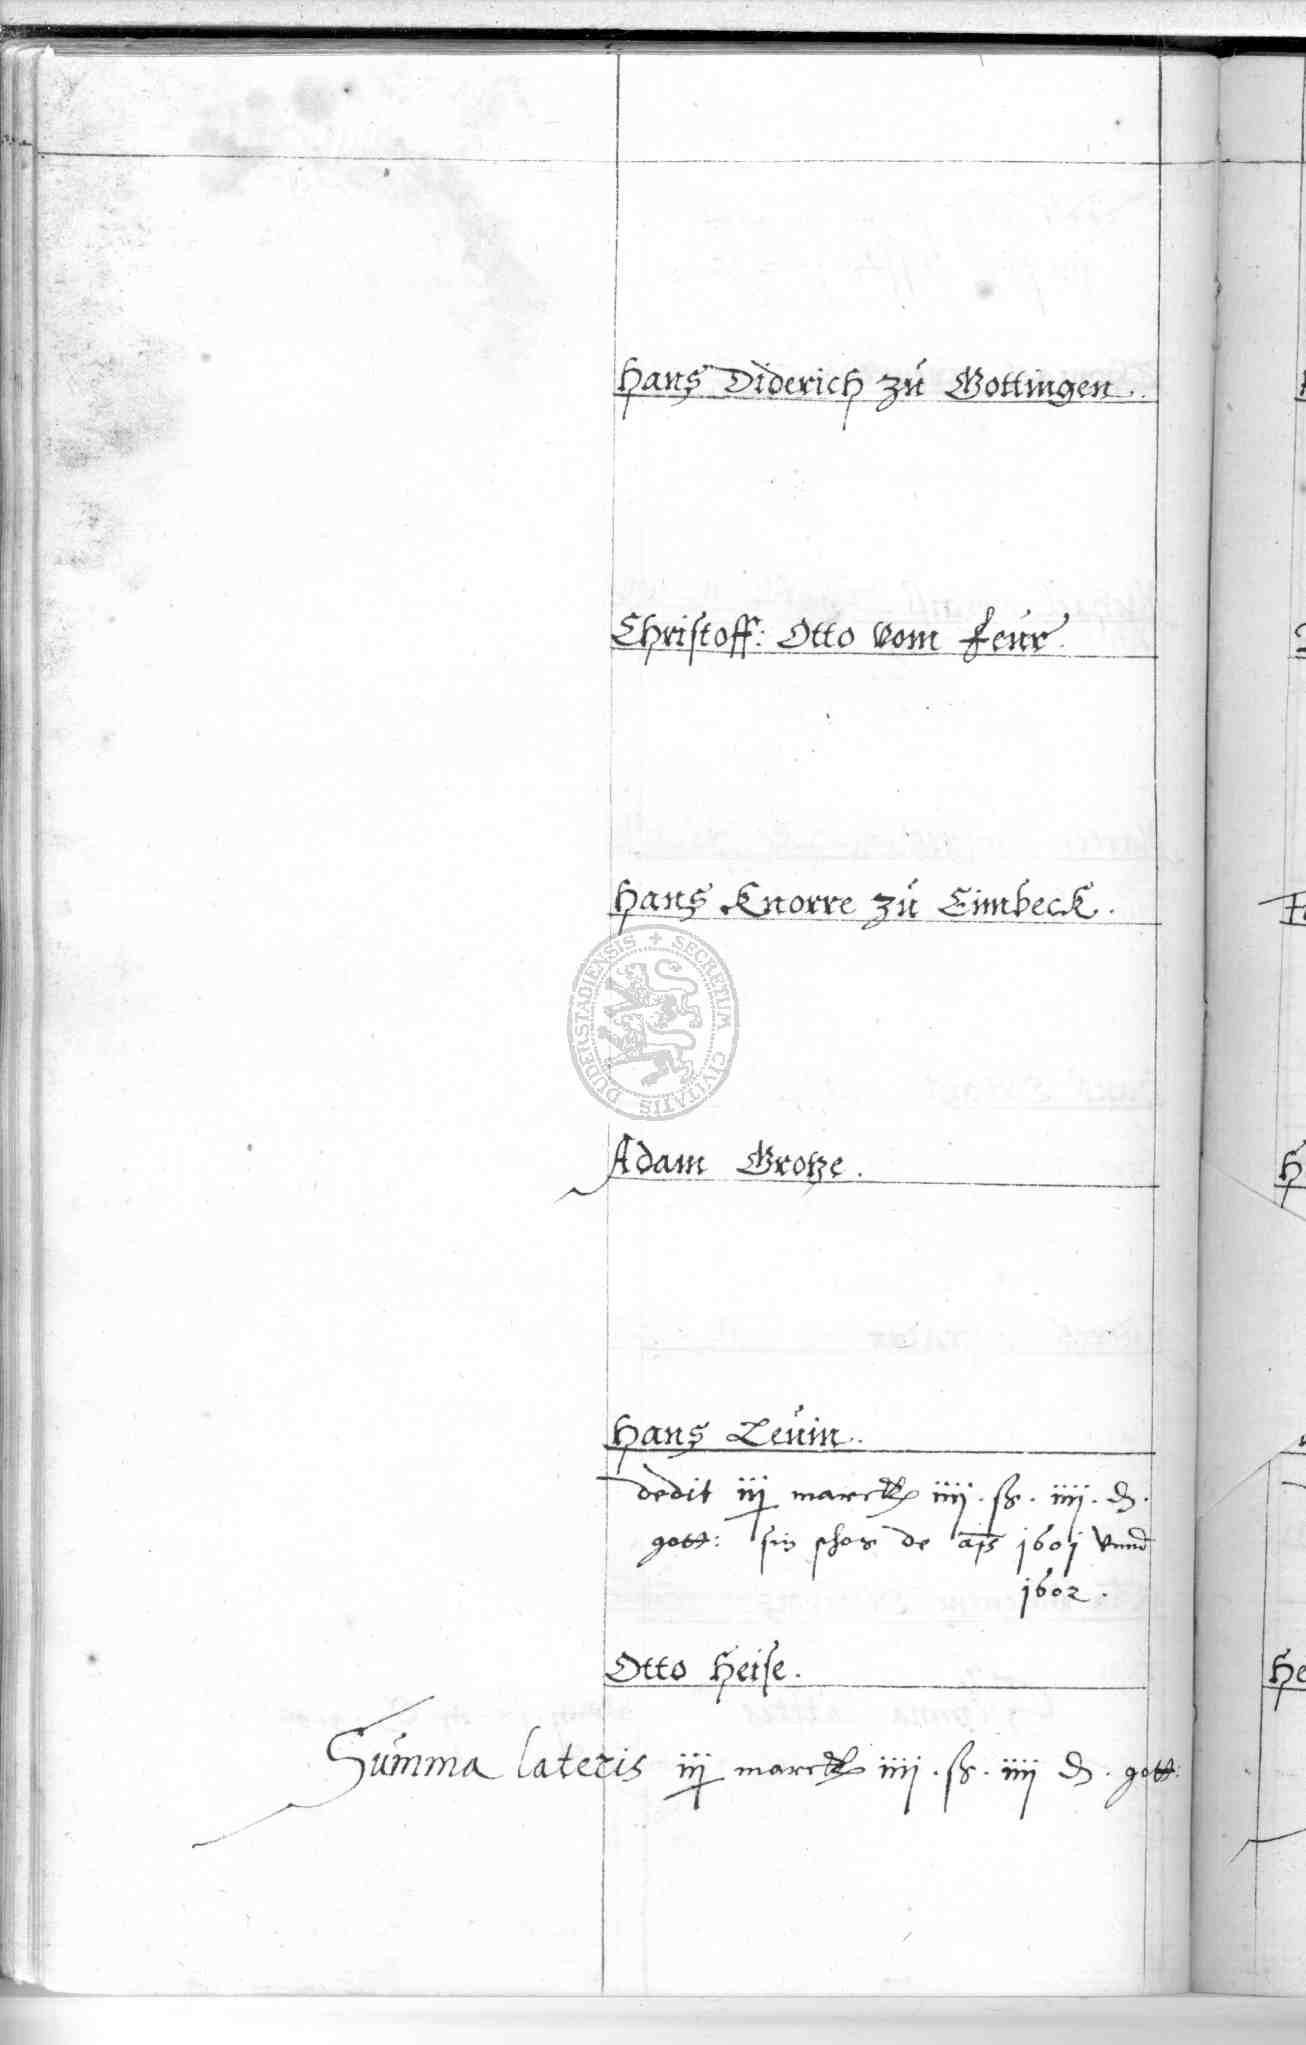 Hans Diderich zú Gottingen.
Christoff: Otto vom Feúr.
Hans Knorre zú Eimbeck.
SECRETUM CIVITATIS DUDERSTADIENSIS
Adam Grotze.
Hans Leúin.
dedit iij marck iiij. ß. iiij. d.
gott: sin schos de a͞is 1601 vnnd
1602.
Otto Heise.
Súmma lateris iij marck iiij. ß. iiij d. gott: